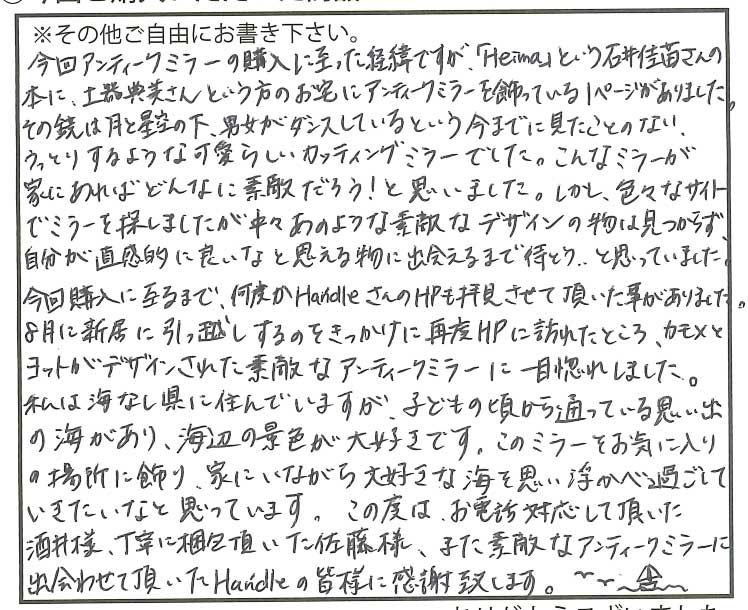 ※その他ご自由にお書き下さい。
今回アンティークミラーの購入に至った経緯ですが、「Heima」という石井佳苗さんの
本に、土器典美さんという方のお宅にアンティークミラーを飾っている1ページがありました。
その鏡は月と星空の下、男女がダンスしているという今までに見たことのない、
うっとりするような可愛らしいカッティングミラーでした。こんなミラーが
家にあればどんなに素敵だろう！と思いました。しかし、色々なサイト
でミラーを探しましたが中々あのような素敵なデザインの物は見つからず、
自分が直感的に良いなと思える物に出会えるまで待とう..と思っていました。
今回購入に至るまで、何度かHandleさんのHPも拝見させて頂いた事がありました。
8月に新居に引っ越しするのをきっかけに再度HPに訪れたところ、カモメと
ヨットがデザインされた素敵なアンティークミラーに一目惚れしました。
私は海なし県に住んでいますが、子どもの頃から通っている思い出
の海があり、海辺の景色が大好きです。このミラーをお気に入り
の場所に飾り、家にいながら大好きな海を思い浮かべ過ごして
いきたいなと思っています。この度は、お電話対応して頂いた
酒井様、丁寧に梱包頂いた佐藤様、また素敵なアンティークミラーに
出会わせて頂いたHandleの皆様に感謝致します。